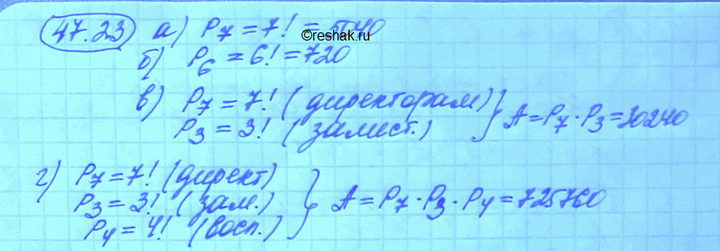 47.23 а) P₇ = 7! = 5040
©reshak.ru
б) P₆ = 6! = 720
в) P₇ = 7! (директорам)
P₃ = 3! (замест.) } A = P₇ · P₃ = 30240
г) P₇ = 7! (директ)
P₃ = 3! (зам.) } A = P₇ · P₃ · P₄ = 725760
P₄ = 4! (восп.)